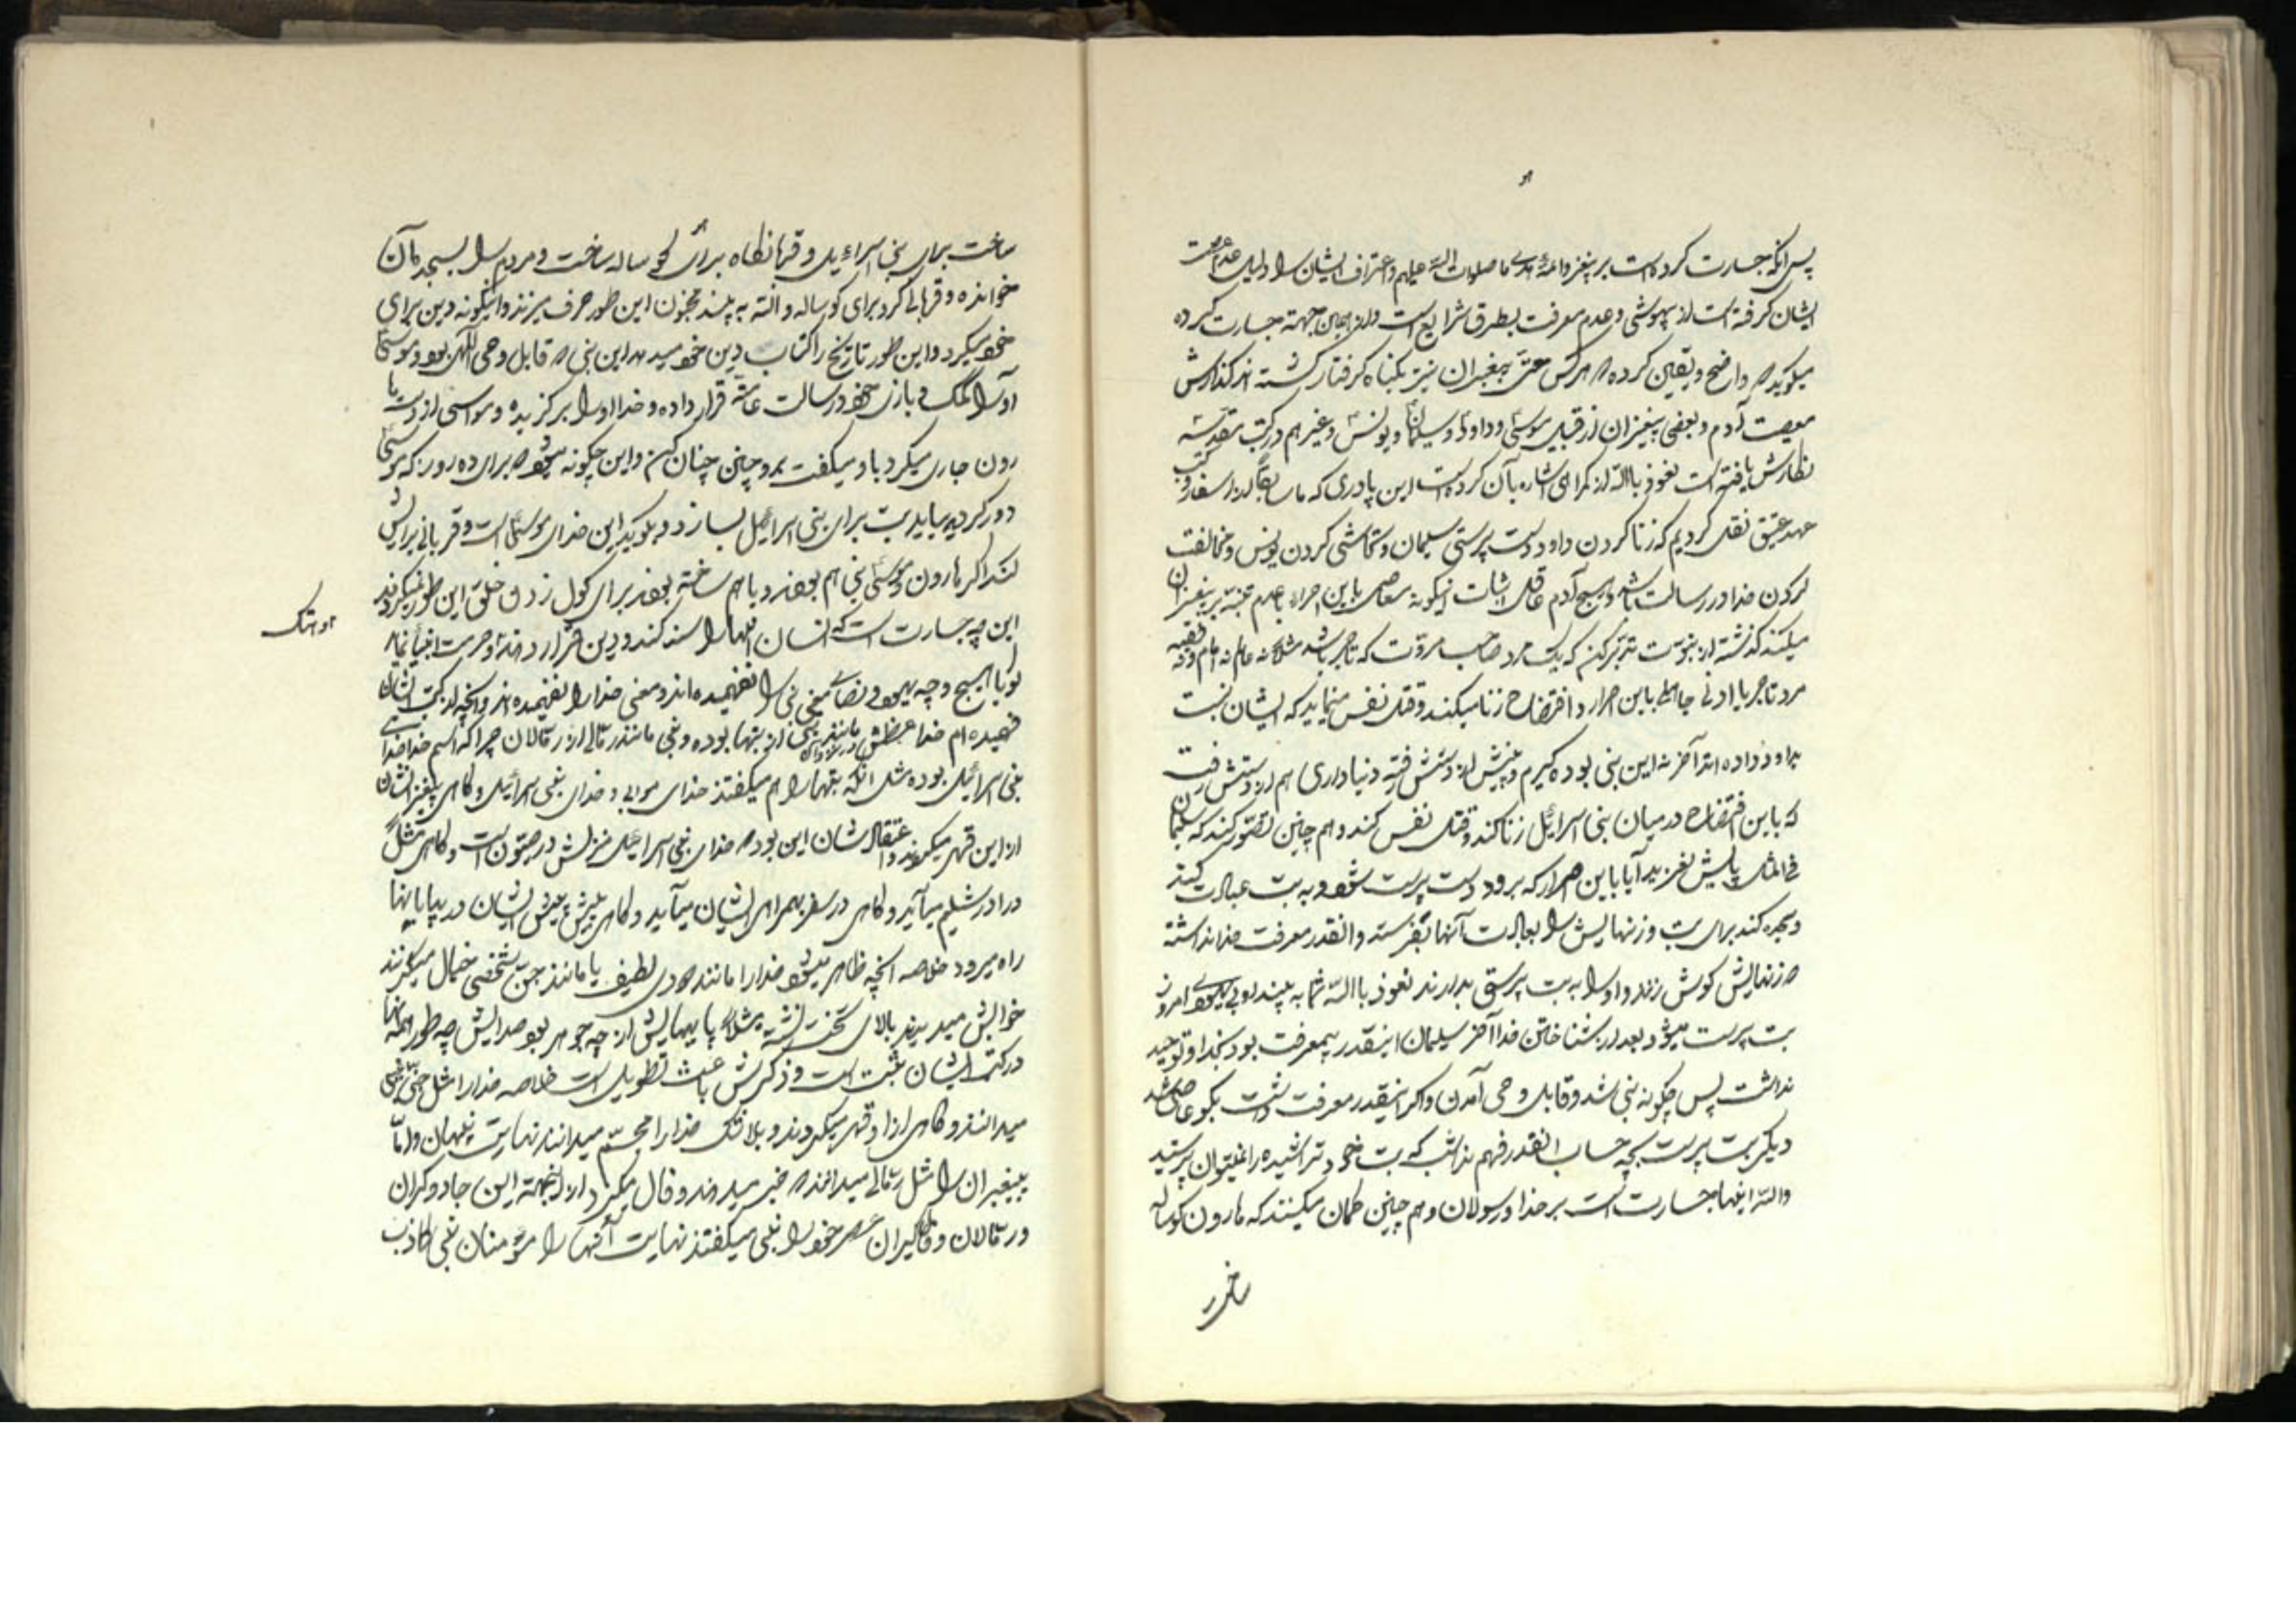 پس آنکه جسارت کرده است بر پیغمبر و ائمهٔ هدی ما صلوات الله علیهم و اعتراف ایشان را دلیل عدم عصمت
ایشان گرفته است از بیهوشی و عدم معرفت بطرق شرایع است و از همین جهته جسارت کرده
میکوید که واضح و یقین کرده که هر کس حتی پیغمبران نیز بکناه کرفتار کشته اند کذارش
معصیت آدم و بعضی پیغمبران از قبیل موسی و داود و سلیمان و یونس و غیرهم در کتب مقدسه
نکارش یافته است نعوذ بالله از کمراهی اشاره بآن کرده است این پادری که ما سابقا از اسفار و کتب
عهد عتیق نقل کردیم که زنا کردن داود و بت پرستی سلیمان و تحاشی کردن یونس و مخالفت
کردن خدا در رسالت باشد و هیچ آدم عاقل اثبات اینکونه معاصی باین اصرار و عدم تنبه بر پیغمبران
میکند کذشته از نبوت تدبر کن که یک مرد صاحب مروت که تاجر باشد مثلا نه عالم نه امام و نه فقیه
مرد تاجر یا ادنی جاهلی باین اصرار و افتضاح زنا میکند و قتل نفس مینماید که ایشان نسبت
بداود داده اند آخر نه این نبی بوده کیرم دینش از دستش رفته دنیاداری هم از دستش رفت
که باین افتضاح در میان بنی اسرائیل زنا کند و قتل نفس کند و هم چنین تصور کنند که سلیمان
فی المثل پایش لغزید آیا باین اصرار که برود و بت پرست شود و به بت عبادت کند
و سجده کند برای بت و زنهایش را بعبادت آنها بفرستد و انقدر معرفت خدا نداشته
که زنهایش کولش زنند و او را به بت پرستی بدارند نعوذ بالله شما به بینید اوبی یهودی امروز
بت پرست میشود بعد از شناختن خدا آخر سلیمان اینقدر بیمعرفت بود بخدا و توحید
نداشت پس چکونه نبی شد و قابل وحی آمدن و اکر اینقدر معرفت داشت بکو عاصی شد
دیکر بت پرست بچه حساب انقدر فهم نداشت که بت خود تراشیده را نمیتوان پرستید
والله اینها جسارت است بر خدا و رسولان و هم چنین کمان میکنند که هارون کوساله
ساخت
ساخت برای بنی اسراءیل و قربانکاه برای کوساله ساخت و مردم را بسجده آن
خوانده و قربانی کرد برای کوساله والله به بینید مجنون این طور حرف میزند و اینکونه دین برای
خود میکیرد و این طور تاریخ را کتاب دین خود میداند این نبی که قابل وحی الهی بود و موسی
او را کمک و بازوی خود در رسالت عامه قرار داده و خدا او را برکزیده و موسی از دست ما
رون جاری میکرد باو میکفت برو چنین چنان کن و این چکونه میشود که برای ده روز که موسی
دور کردید بیاید بت برای بنی اسرائیل بسازد و بکوید این خدای موسی است و قربانی برایش
کند اکر هارون و موسی نبی هم بودند و با هم ساخته بودند برای کول زدن خلق این طور نمیکردند
این چه جسارت است که انسان اینها را سند کند و دین قرار دهد و حرمت انبیا نماید
کویا هیچ وجه یهود و نصاری معنی نبی را نفهمیده اند و معنی خدا را نفهمیده اند و آنچه از کتب ایشان
فهمیده ام خدا عظمش مانند بتی از بتها بوده و نبی مانند رمالی از رمالان چرا که اسم خدا خدای
بنی اسرائیل بوده مثل آنکه بتها را هم میکفتند خدای موابی و خدای بنی اسرائیل و کاهی پیغمبر ایشان
از این قهر میکردند و اعتقاد شان این بوده خدای بنی اسرائیل منزلش در صیون است و کاهی مثلا
در اورشلیم میآید و کاهی در سفر بهمراهی ایشان میآید و کاهی پیش پیش ایشان در بیابانها
راه میرود خلاصه آنچه ظاهر میشود خدا را مانند دودی لطیف یا مانند جن شخصی خیال میکردند
خوابش میدیدند بالای تخت نشسته مثلا پایهایش از چه جوهر بود صدایش چه طور همه اینها
در کتب ایشان ثبت است و ذکرش باعث تطویل است خلاصه خدا را مثل جنی شخصی
میدانستند و کاهی از او قهر میکردند و بلا شک خدا را مجسم میدانند نهایت پنهان و اما
پیغمبران را مثل رمالی میدانند که خبر میدهند و فال میکیرد از اینجهته این جادوکران
و رمالان و فالکیران عصر خود را نبی میکفتند نهایت آنها را مؤمنان نبی کاذب